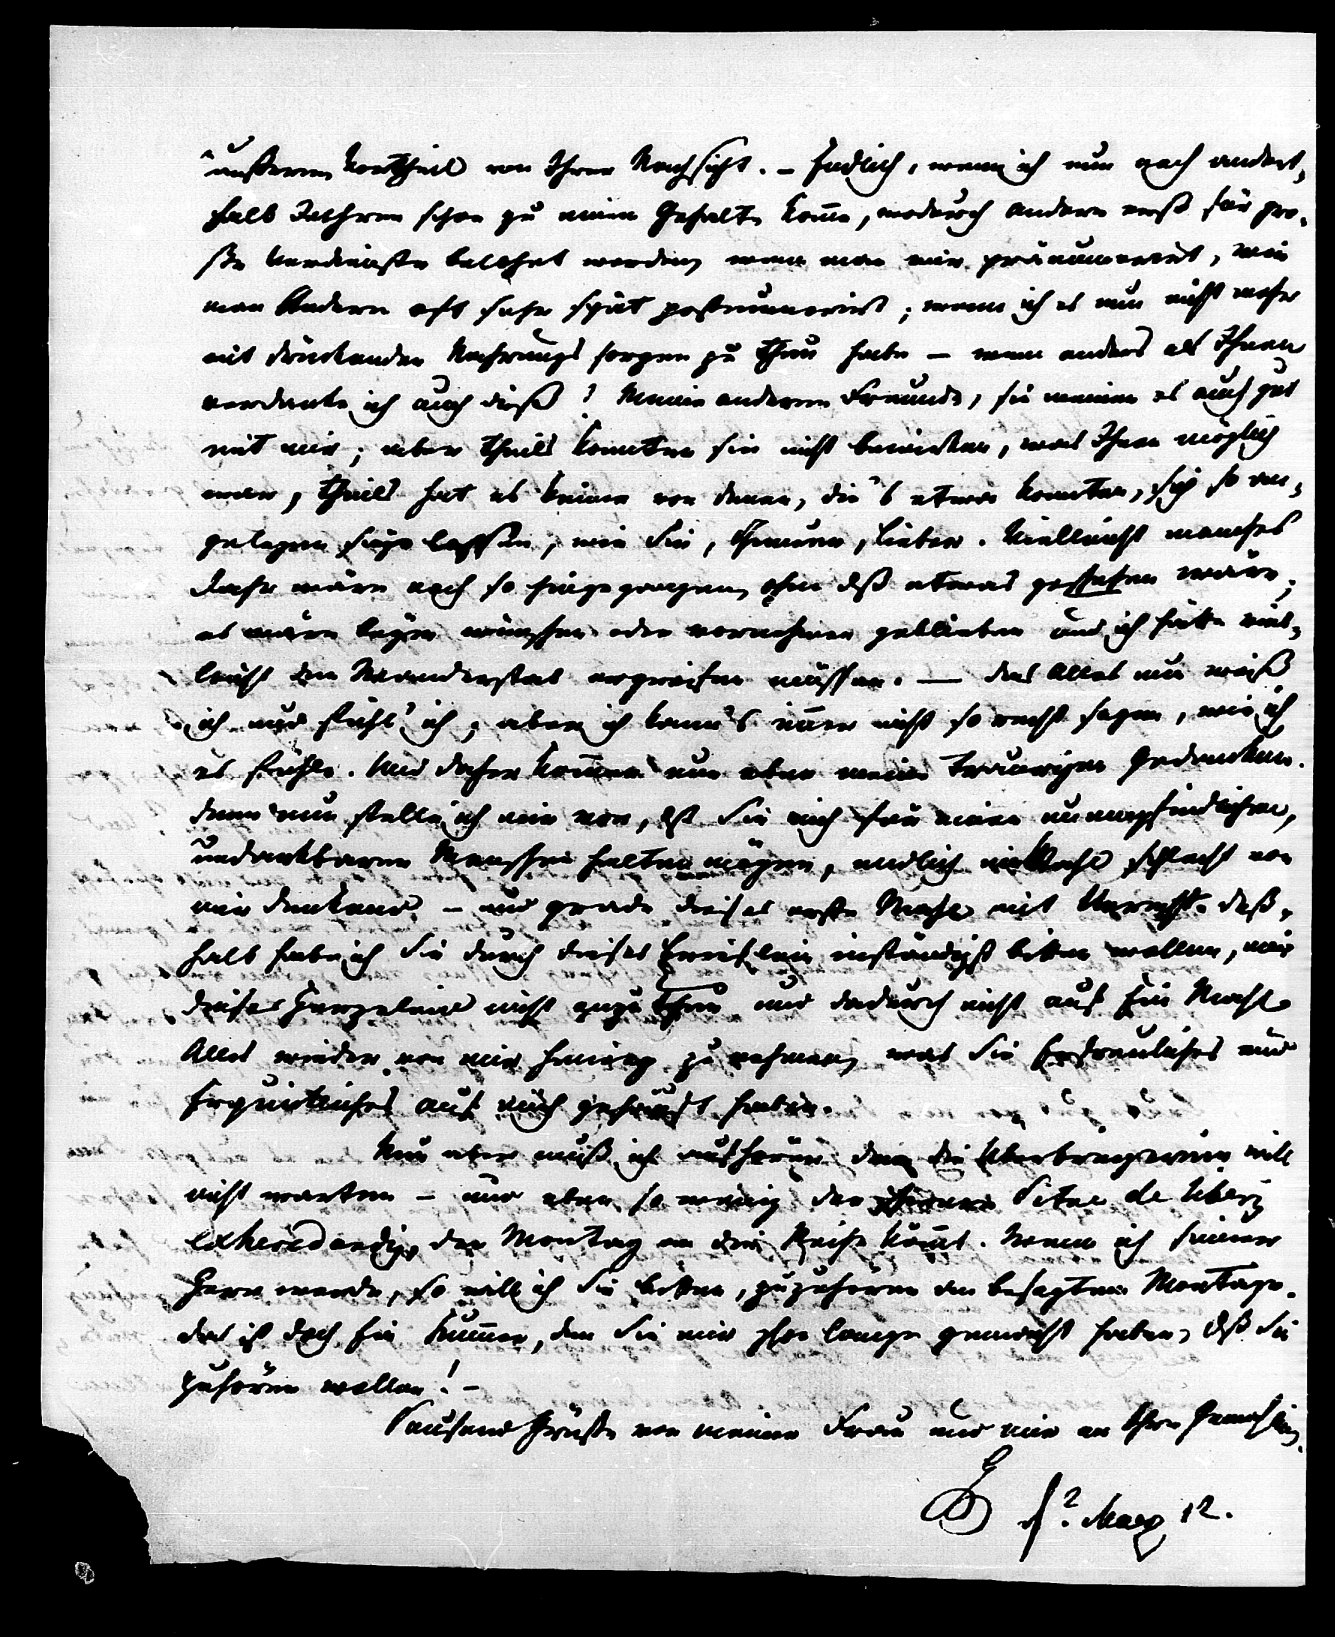 äußeren Vortheil von Ihrer Nachsicht. – Endlich, wenn ich nun nach andert-
halb Jahren schon zu einem Gehalte komme, wodurch andere erst für gro-
ße Verdienste belohnt werden, wenn man mir pränumerirt, wie
man Andern oft sehr spät postnumerirt; wenn ich es nun nicht mehr
mit drückenden Nahrungssorgen zu thun habe – wem anders als Ihnen
verdanke ich auch dieß? Meine anderen Freunde, sie meinen es auch gut
mit mir; aber theils konnten sie nicht bewirken, was Ihnen möglich
war, theils hat es keiner von denen, die's etwa konnten, sich so an-
gelegen seyn lassen, wie Sie, Theurer, Lieber. Vielleicht manches
Jahr wäre noch so hingegangen, ohne dß etwas geschehen wäre,
es wäre beym wünschen oder vornehmen geblieben und ich hätte viel-
leicht den Wanderstab ergreifen müssen. — Das Alles nun weiß
ich und fühl' ich; aber ich kann's immer nicht so recht sagen, wie ich
es fühle. Und daher kommen nun eben meine traurigen Gedanken.
denn nun stelle ich mir vor, dß Sie mich für einen unempfindlichen,
undankbaren Menschen halten mögen, endlich schlecht von
mir denken – und grade dieses erste Mahl mit Unrecht. Deß-
halb habe ich Sie durch dieses Brieflein inständigst bitten wollen, mir
dieses Herzeleid nicht anzuthun und dadurch nicht auf Ein Mahl
Alles wieder von mir hinweg zu nehmen, was Sie Erfreuliches und
Erquickliches auf mich gehäuft haben.
Nun aber muß ich aufhören denn die Überbringerinn will
nicht warten – und eben so wenig der Titel de liberis
exheredandis, der Montag an die Reihe kömmt. Wenn ich seiner
Herr werde, so will ich Sie bitten, zuzuhören am besagten Montage.
das ist doch ein Kummer, den Sie mir schon lange gemacht haben, dß Sie
zuhören wollen! –
Tausend Grüße von meiner Frau und mir an Ihre Gemahlin.
d. 2. März 12.